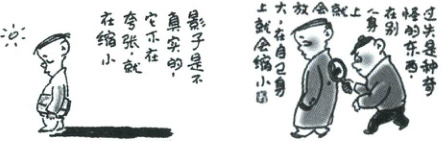 影子是不
真实的，
它不在
夸张，就
在缩小
过失是种奇
怪的东西，
在别
人身
上就会放
大，在自己身
上就会缩小